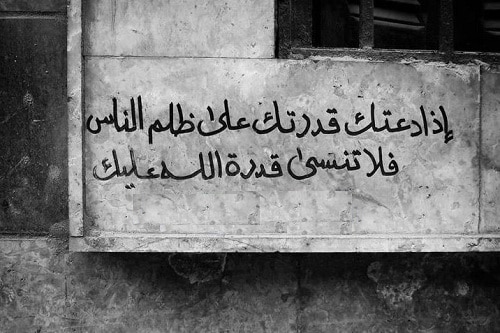 إذا دعتك قدرتك على ظلم الناس
فلا تنسى قدرة الله عليك